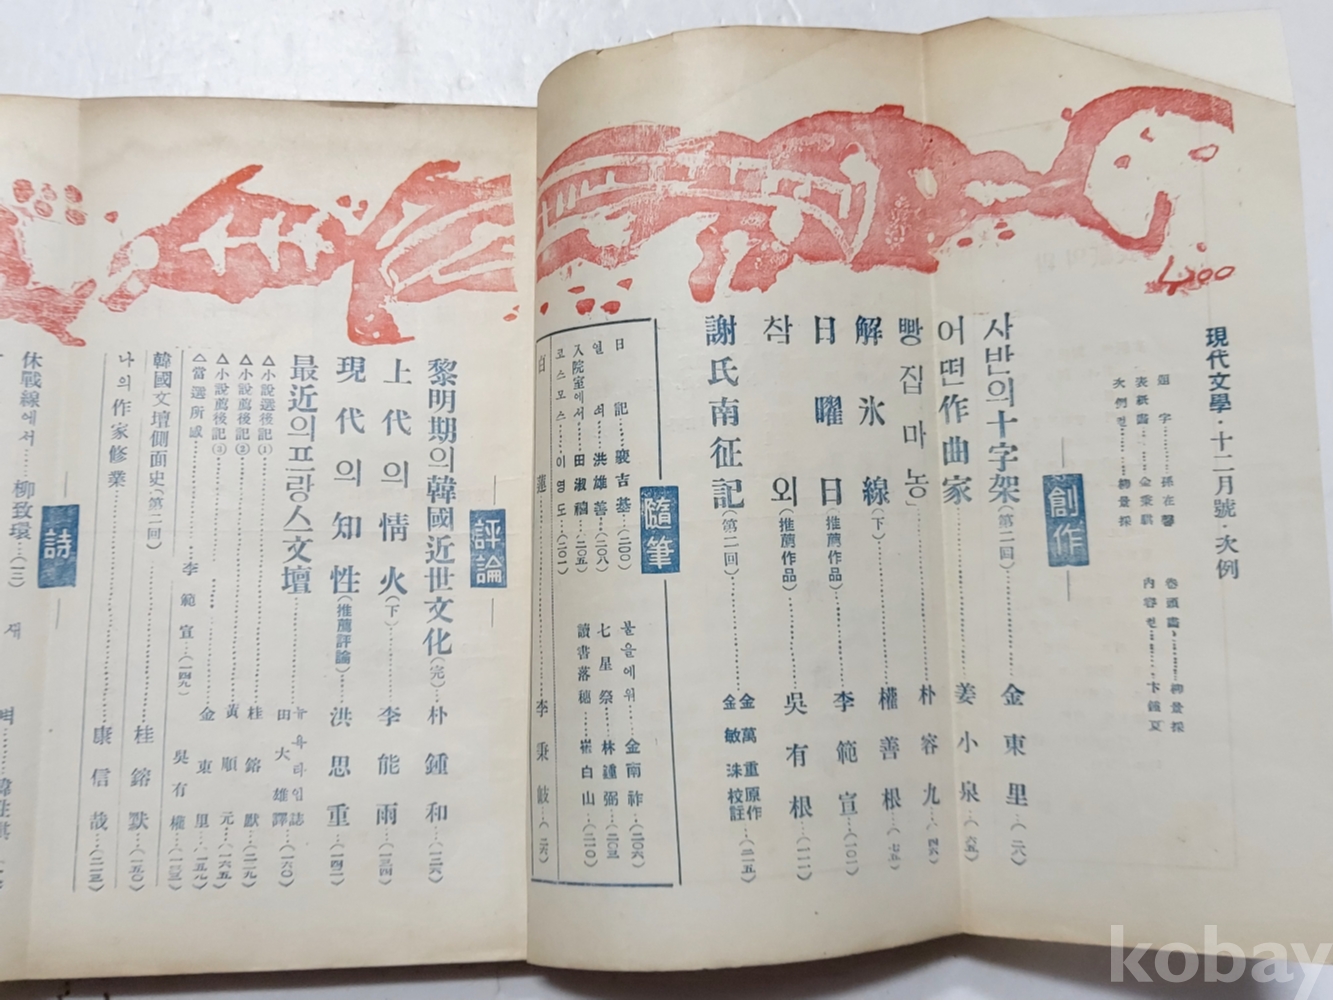 現代文學·十二月號·次例
題字……孫在馨
表紙畵……金秉騏
次例컷……柳景採
卷頭畵……柳景採
內容컷……卞鍾夏
創作
사반의十字架(第二回)……金東里…(二六)
어떤作曲家……姜小泉…(六五)
빵집마농……朴容九…(四六)
解氷線(下)……權善根…(七五)
日曜日(推薦作品)……李範宣…(一〇一)
참외(推薦作品)……吳有根…(一一一)
謝氏南征記(第二回)……金萬重原作 金敏洙校註…(二一五)
隨筆
日記……駿吉基…(二〇〇)
불을에워……金南祚…(二〇六)
일쇠……洪雄善…(二〇八)
七星祭……林鍾弼…(二〇三)
入院室에서……田淑禧…(二〇五)
讀書落穗……崔白山…(二一〇)
코스모스……이영도…(二〇一)
白蓮……李秉岐…(二六)
評論
黎明期의韓國近世文化(完)…朴鍾和…(一二六)
上代의情火(下)……李能雨…(一三四)
現代의知性(推薦評論)…洪思重…(一四二)
最近의프랑스文壇……뉴욕타임誌 田大雄譯…(一六〇)
△小說選後記(1)……桂鎔默…(二一九)
△小說薦後記(2)……黃順元…(一六五)
△小說薦後記(3)……金東里…(一五九)
△當選所感……李範宣…(一四九) 吳有權…(一三三)
韓國文壇側面史(第二回)……桂鎔默…(一五〇)
나의作家修業……康信哉…(二一三)
詩
休戰線에서……柳致環…(一三)
새벽
4200
kobay